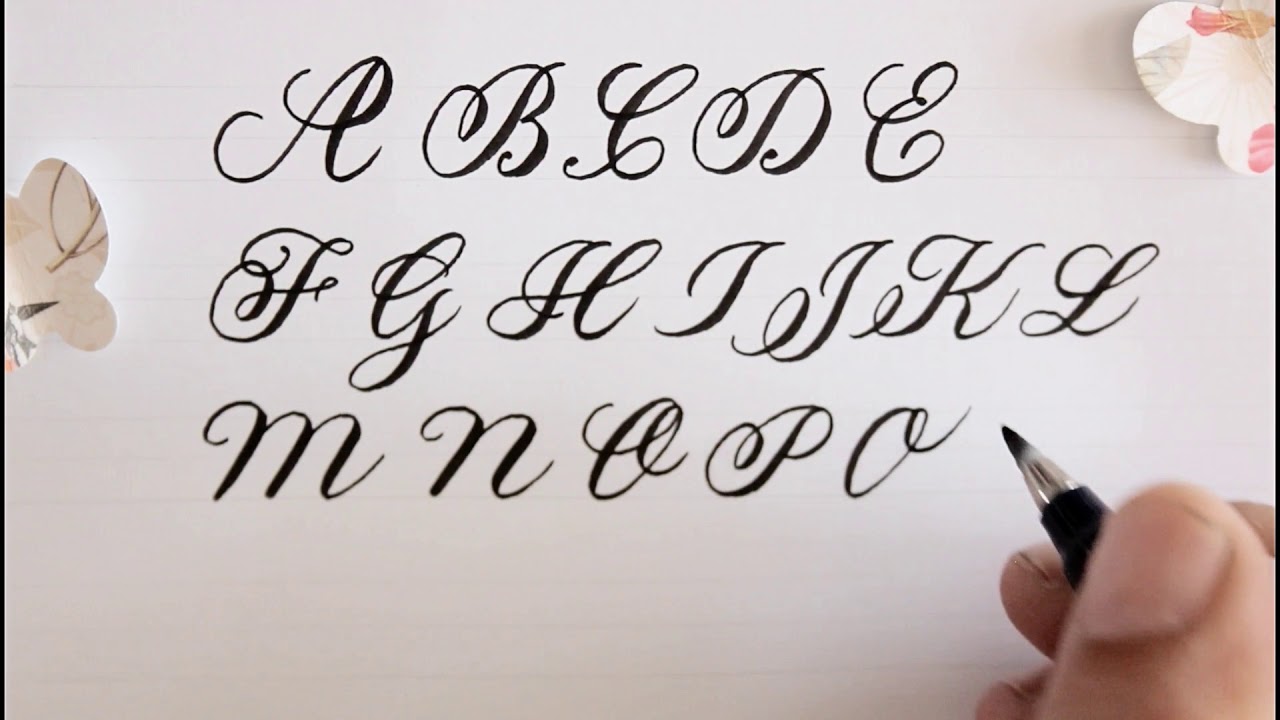 A B C D E
F G H I J K L
M N O P O